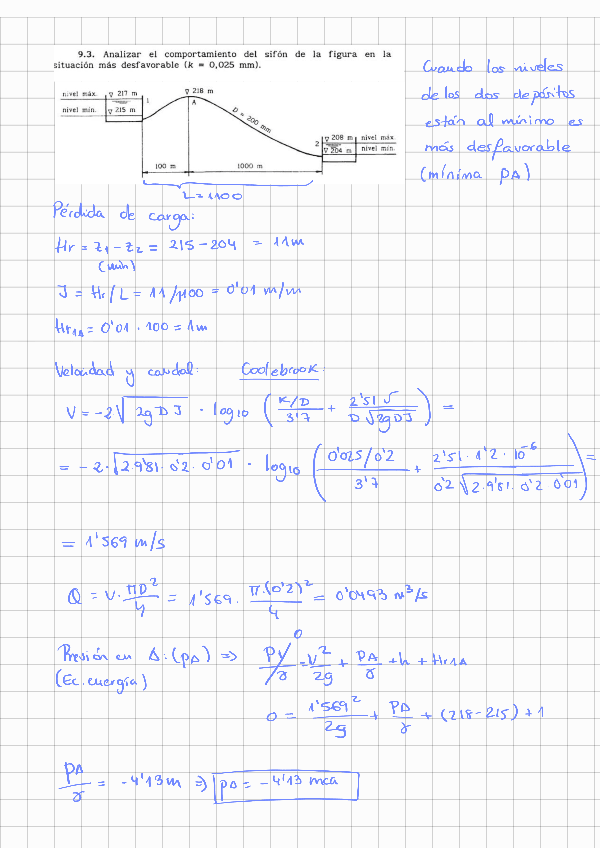 9.3. Analizar el comportamiento del sifón de la figura en la
situación más desfavorable (k = 0,025 mm).
nivel máx. ▽ 217 m
nivel mín. ▽ 215 m
1
▽ 218 m
A
D = 200 mm
2
▽ 208 m nivel máx.
▽ 204 m nivel mín.
100 m
1000 m
L=1100
Cuando los niveles
de los dos depósitos
están al mínimo es
más desfavorable
(mínima pA)
Pérdida de carga:
Hr = z1 - z2 = 215 - 204 = 11m
(min)
J = Hr/L = 11/1100 = 0'01 m/m
Hr1A = 0'01 · 100 = 1m
Velocidad y caudal: Coolebrook:
V = -2 √2gDJ · log10 ( (K/D)/3'7 + 2'51 ν/(D √2gDJ) ) =
= -2 · √2·9'81·0'2·0'01 · log10 ( (0'025/0'2)/3'7 + (2'51 · 1'2 · 10^-6)/(0'2 √2·9'81·0'2·0'01) ) =
= 1'569 m/s
Q = V · πD²/4 = 1'569 · π·(0'2)²/4 = 0'0493 m³/s
Presión en A: (pA) ⇒ P1/γ = V²/2g + PA/γ + h + Hr1A
0
(Ec. energía)
0 = 1'569²/2g + PA/γ + (218-215) + 1
PA/γ = -4'13 m ⇒ pA = -4'13 mca